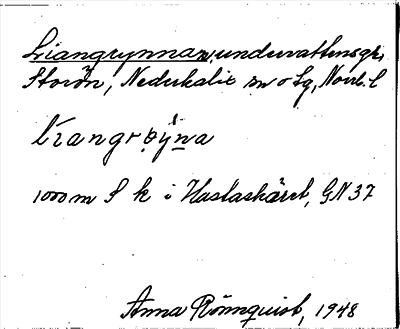 Liangrynnan, undervattensgr.,
Storön, Nederkalix sn o Sg, Norrb. l
1000 m S k i Hastaskäret, GN 37
Anna Rönnquist, 1948